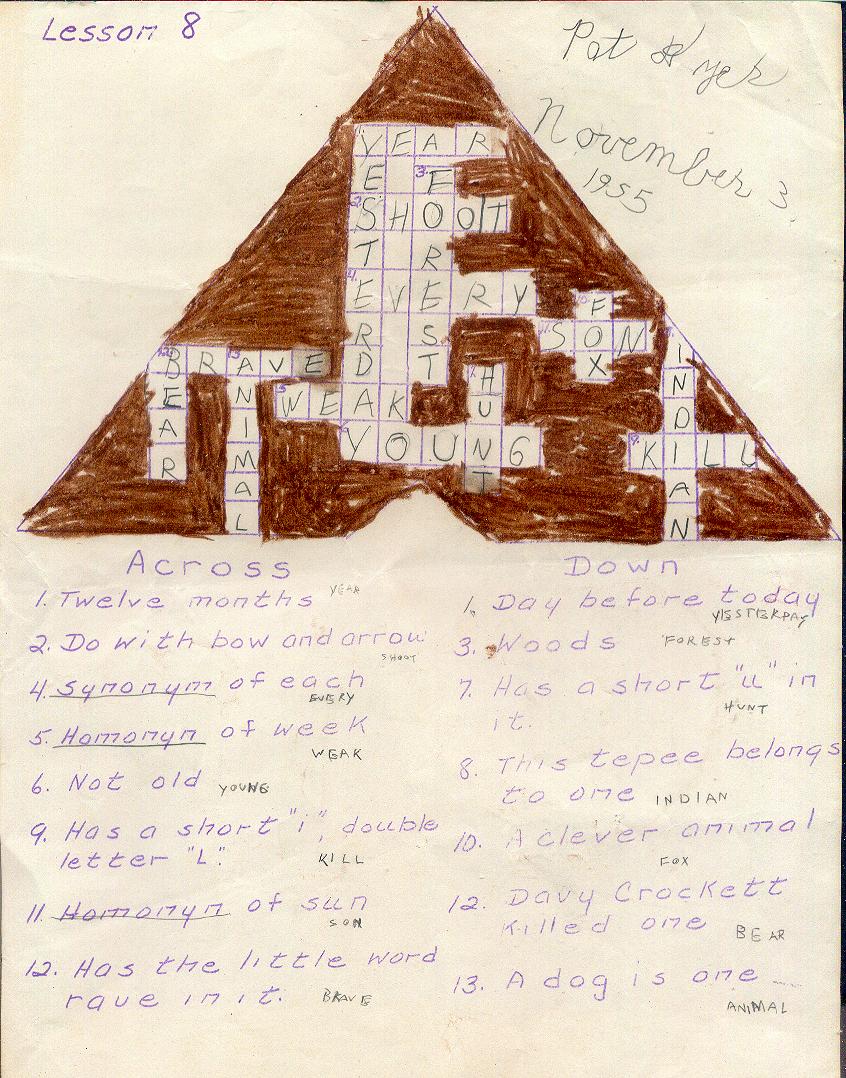 Lesson 8
November 3,
1955
YEAR
E
SHOOT
EVERY
SON
BRAVE
WEAK
YOUNG
KILL
YESTERDAY
FOREST
HUNT
INDIAN
FOX
BEAR
ANIMAL
Across
1. Twelve months YEAR
2. Do with bow and arrow
SHOOT
4. Synonym of each
EVERY
5. Homonyn of week
WEAK
6. Not old YOUNG
9. Has a short "i", double
letter "L". KILL
11. Homonyn of sun
SON
12. Has the little word
rave in it. BRAVE
Down
1. Day before today
YESTERDAY
3. Woods FOREST
7. Has a short "u" in
it. HUNT
8. This tepee belongs
to one INDIAN
10. A clever animal
FOX
12. Davy Crockett
killed one BEAR
13. A dog is one
ANIMAL